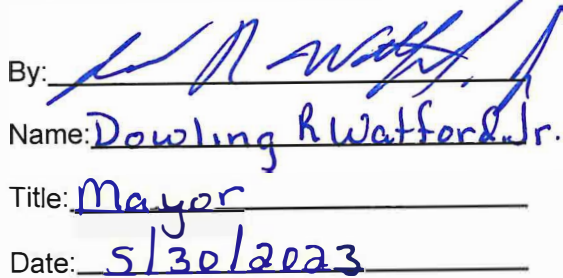 By:
Name: Dowling R Watford Jr.
Title: Mayor
Date: 5/30/2023